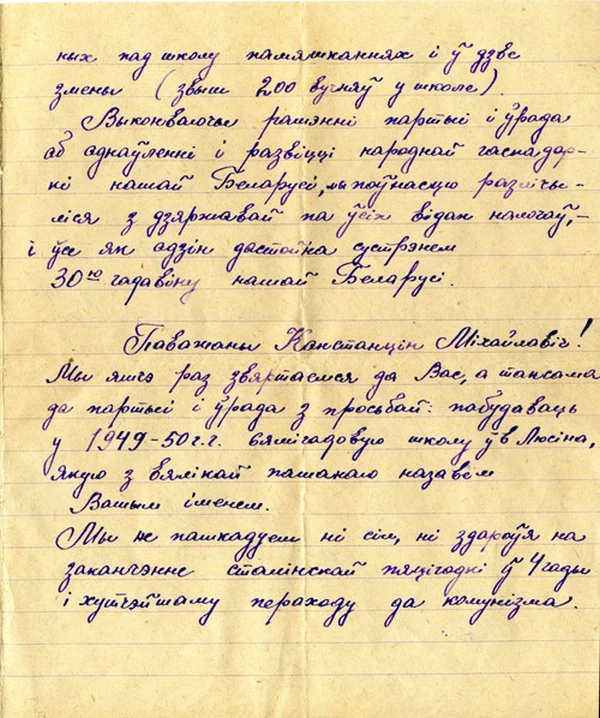 ных пад школу памяшканнях і ў дзве
змены (звыш 200 вучняў у школе).
Выконваючы рашэнні партыі і ўрада
аб аднаўленні і развіцці народнай гаспадар-
кі нашай Беларусі, мы поўнасцю разлічы-
ліся з дзяржавай па ўсіх відах налогаў, –
і ўсе як адзін дастойна сустрэнем
30ю гадавіну нашай Беларусі.
Паважаны Канстанцін Міхайлавіч!
Мы яшчэ раз звяртаемся да Вас, а таксама
да партыі і ўрада з просьбай: пабудаваць
у 1949-50 г.г. сямігадовую школу ў в Люсіна,
якую з вялікай пашанаю назавём
Вашым іменем.
Мы не пашкадуем ні сіл, ні здароўя на
заканчэнне сталінскай пяцігодкі ў 4 гады
і хутчэйшаму пераходу да комунізма.